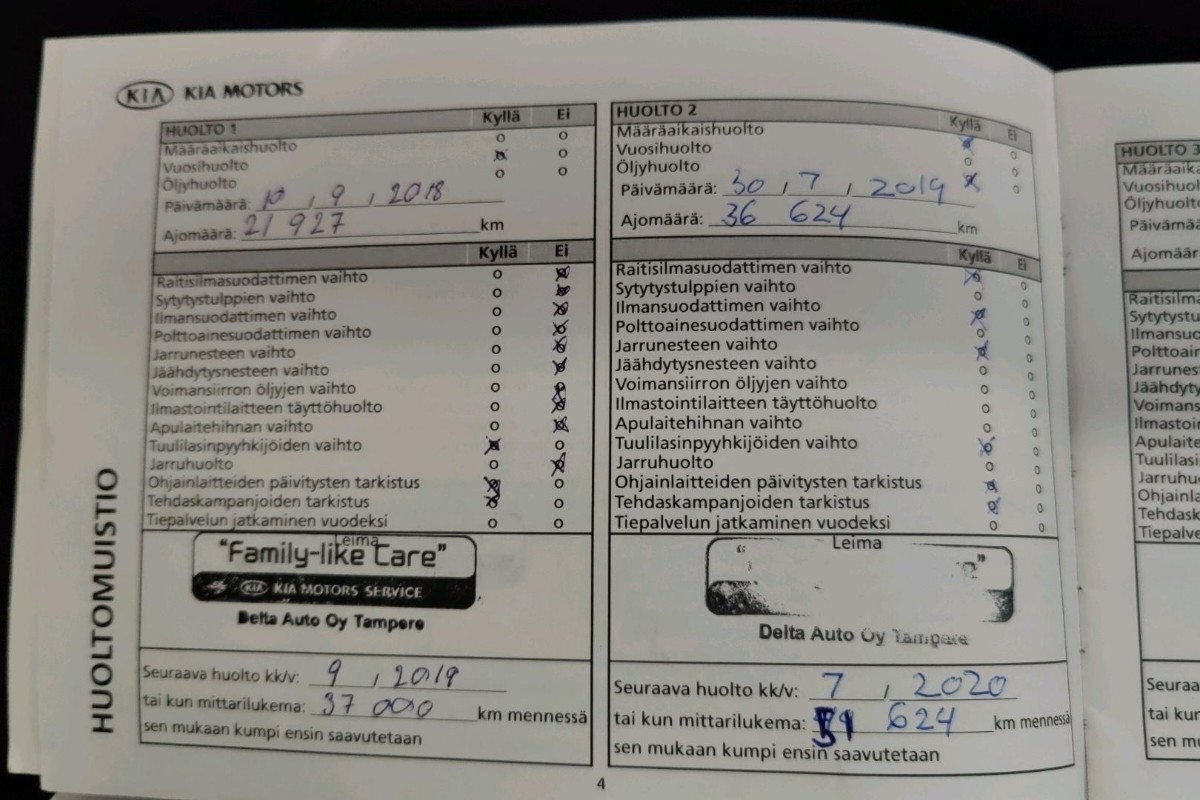 KIA KIA MOTORS
HUOLTO 1 Kyllä Ei
Määräaikaishuolto o o
Vuosihuolto o o
Öljyhuolto o o
Päivämäärä: 10, 9, 2018
Ajomäärä: 21 927 km
Kyllä Ei
Raitisilmasuodattimen vaihto o
Sytytystulppien vaihto o
Ilmansuodattimen vaihto o
Polttoainesuodattimen vaihto o
Jarrunesteen vaihto o
Jäähdytysnesteen vaihto o
Voimansiirron öljyjen vaihto o
Ilmastointilaitteen täyttöhuolto o
Apulaitehihnan vaihto o
Tuulilasinpyyhkijöiden vaihto o
Jarruhuolto o
Ohjainlaitteiden päivitysten tarkistus o
Tehdaskampanjoiden tarkistus o
Tiepalvelun jatkaminen vuodeksi o o
Leima
"Family-like Care"
KIA KIA MOTORS SERVICE
Delta Auto Oy Tampere
Seuraava huolto kk/v: 9, 2019
tai kun mittarilukema: 37 000 km mennessä
sen mukaan kumpi ensin saavutetaan
HUOLTO 2 Kyllä Ei
Määräaikaishuolto o
Vuosihuolto o o
Öljyhuolto o
Päivämäärä: 30, 7, 2019
Ajomäärä: 36 624 km
Kyllä Ei
Raitisilmasuodattimen vaihto o
Sytytystulppien vaihto o o
Ilmansuodattimen vaihto o
Polttoainesuodattimen vaihto o o
Jarrunesteen vaihto o
Jäähdytysnesteen vaihto o o
Voimansiirron öljyjen vaihto o o
Ilmastointilaitteen täyttöhuolto o o
Apulaitehihnan vaihto o o
Tuulilasinpyyhkijöiden vaihto o
Jarruhuolto o o
Ohjainlaitteiden päivitysten tarkistus o
Tehdaskampanjoiden tarkistus o
Tiepalvelun jatkaminen vuodeksi o o
Leima
Delta Auto Oy Tampere
Seuraava huolto kk/v: 7, 2020
tai kun mittarilukema: 624 km mennessä
sen mukaan kumpi ensin saavutetaan
HUOLTOMUISTIO
4
HUOLTO 3
Määräaika
Vuosihuolto
Öljyhuolto
Päivämää
Ajomäär
Raitisilma
Sytytystu
Ilmansuo
Polttoain
Jarrunes
Jäähdyty
Voimans
Ilmastoin
Apulaite
Tuulilasi
Jarruhu
Ohjainla
Tehdask
Tiepalve
Seuraa
tai kur
sen mu